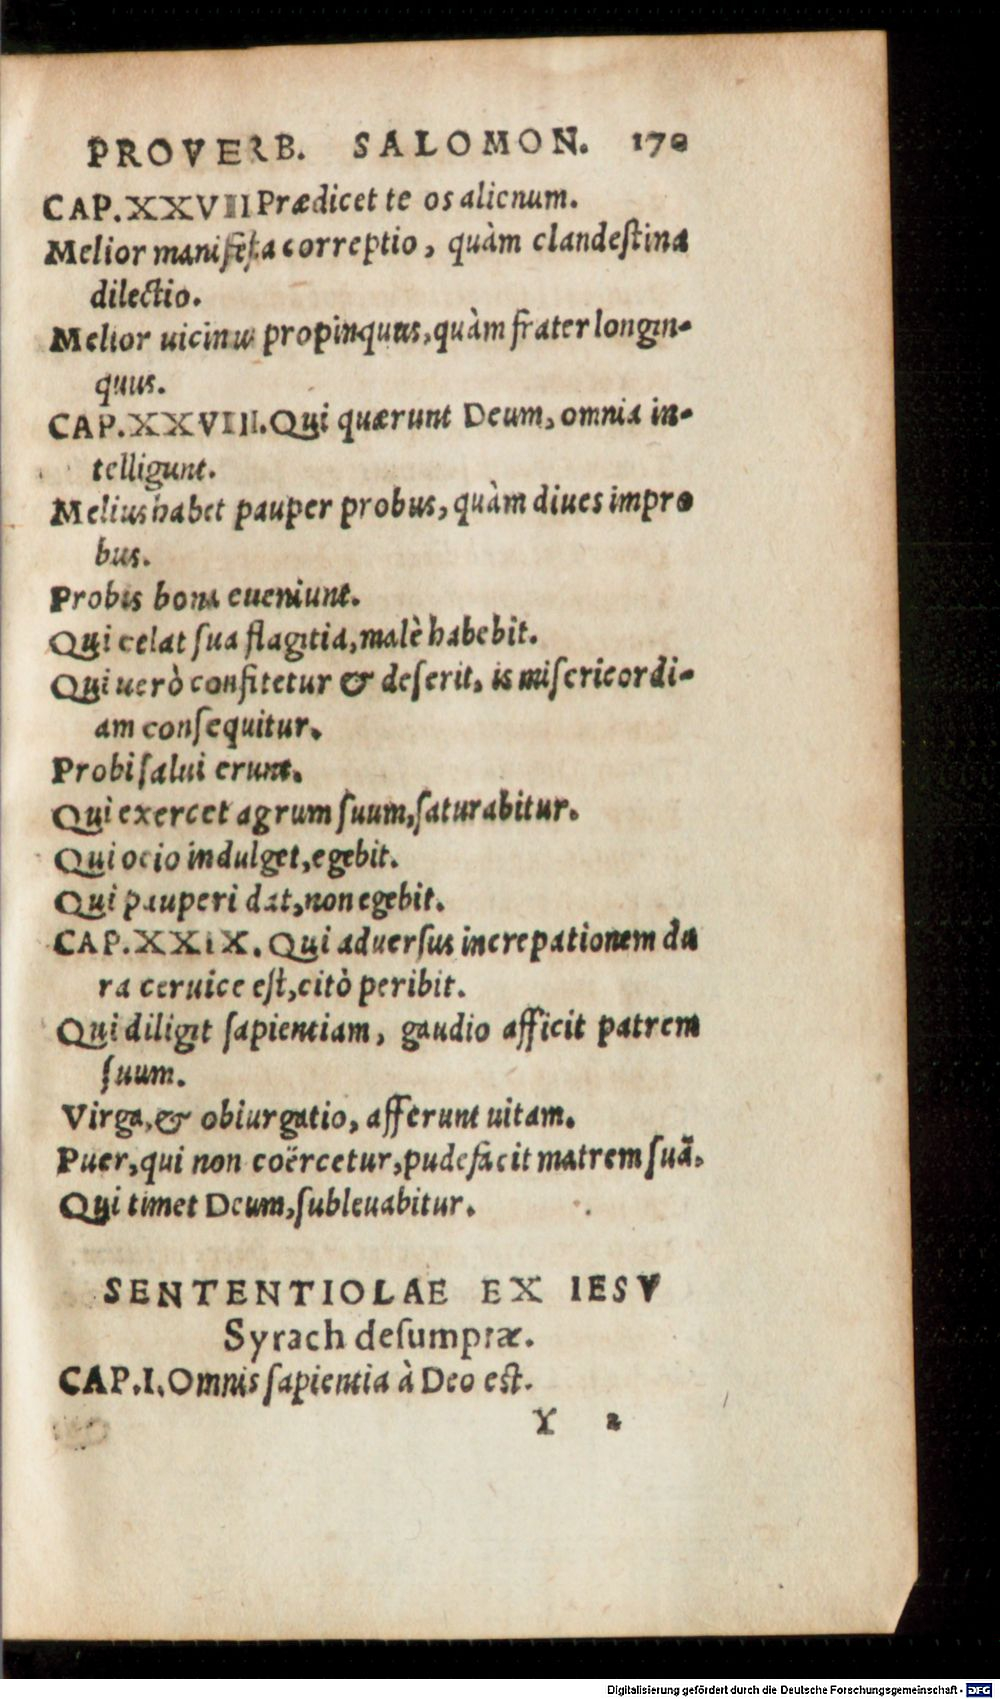 PROVERB. SALOMON. 170
CAP.XXVII Prædicet te os alienum.
Melior manifeſta correptio, quàm clandeſtina
dilectio.
Melior uicinus propinquus, quàm frater longin-
quus.
CAP.XXVIII. Qui quærunt Deum, omnia in-
telligunt.
Melius habet pauper probus, quàm diues impro
bus.
Probis bona eueniunt.
Qui celat ſua flagitia, malè habebit.
Qui uerò confitetur & deſerit, is miſericordi-
am conſequitur.
Probi ſalui erunt.
Qui exercet agrum ſuum, ſaturabitur.
Qui ocio indulget, egebit.
Qui pauperi dat, non egebit.
CAP.XXIX. Qui aduerſus increpationem du
ra ceruice eſt, citò peribit.
Qui diligit ſapientiam, gaudio afficit patrem
ſuum.
Virga, & obiurgatio, afferunt uitam.
Puer, qui non coërcetur, pudefacit matrem ſuã.
Qui timet Deum, ſubleuabitur.
SENTENTIOLAE EX IESV
Syrach deſumptæ.
CAP.I. Omnis ſapientia à Deo eſt.
Y 2
Digitalisierung gefördert durch die Deutsche Forschungsgemeinschaft - DFG